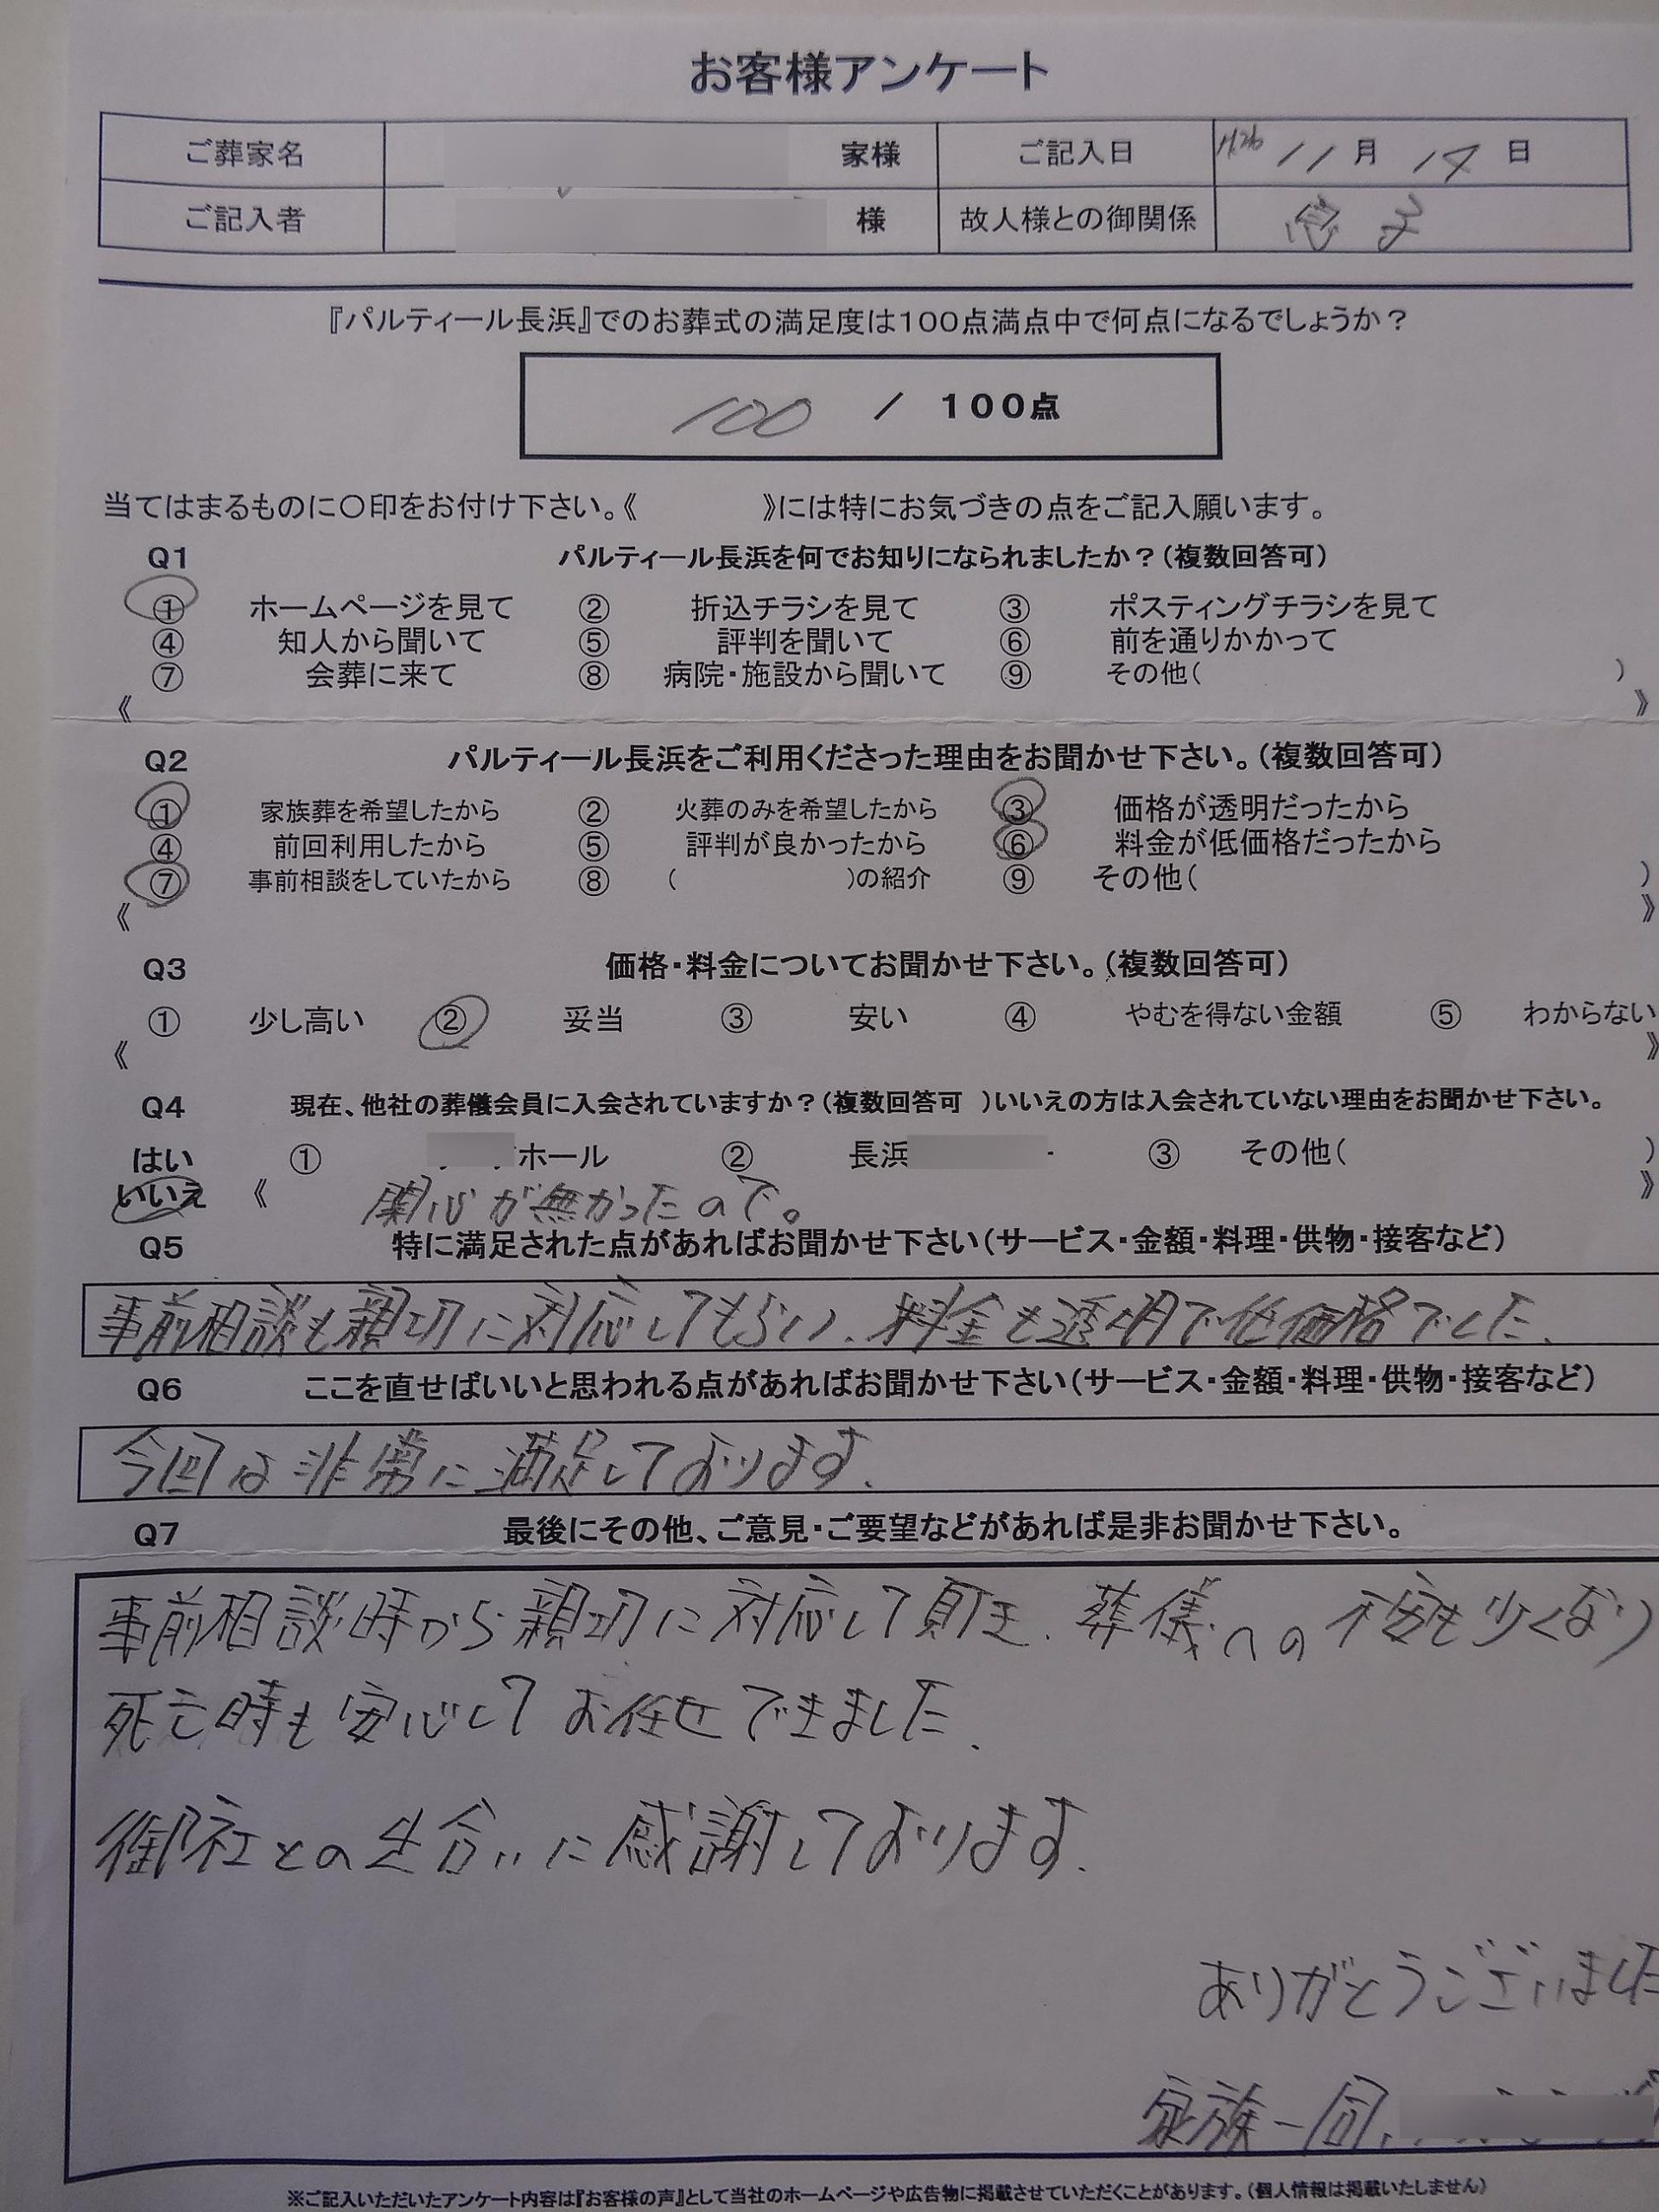 お客様アンケート
ご葬家名 家様 ご記入日 H26 11月 14日
ご記入者 様 故人様との御関係 息子
『パルティール長浜』でのお葬式の満足度は100点満点中で何点になるでしょうか?
100 / 100点
当てはまるものに〇印をお付け下さい。《 》には特にお気づきの点をご記入願います。
Q1 パルティール長浜を何でお知りになられましたか?(複数回答可)
① ホームページを見て ② 折込チラシを見て ③ ポスティングチラシを見て
④ 知人から聞いて ⑤ 評判を聞いて ⑥ 前を通りかかって
⑦ 会葬に来て ⑧ 病院・施設から聞いて ⑨ その他( )
《 》
Q2 パルティール長浜をご利用くださった理由をお聞かせ下さい。(複数回答可)
① 家族葬を希望したから ② 火葬のみを希望したから ③ 価格が透明だったから
④ 前回利用したから ⑤ 評判が良かったから ⑥ 料金が低価格だったから
⑦ 事前相談をしていたから ⑧ ( )の紹介 ⑨ その他( )
《 》
Q3 価格・料金についてお聞かせ下さい。(複数回答可)
① 少し高い ② 妥当 ③ 安い ④ やむを得ない金額 ⑤ わからない
《 》
Q4 現在、他社の葬儀会員に入会されていますか?(複数回答可 )いいえの方は入会されていない理由をお聞かせ下さい。
はい ① ホール ② 長浜 ③ その他( )
いいえ 《 関心が無かったので。 》
Q5 特に満足された点があればお聞かせ下さい(サービス・金額・料理・供物・接客など)
事前相談も親切に対応してもらい、料金も透明で低価格でした、
Q6 ここを直せばいいと思われる点があればお聞かせ下さい(サービス・金額・料理・供物・接客など)
今回は非常に満足しております、
Q7 最後にその他、ご意見・ご要望などがあれば是非お聞かせ下さい。
事前相談時から親切に対応して頂き、葬儀への不安も少くなり
死亡時も安心してお任せできました、
御社との出合いに感謝しております、
ありがとうございました
家族一同、
※ご記入いただいたアンケート内容は『お客様の声』として当社のホームページや広告物に掲載させていただくことがあります。(個人情報は掲載いたしません)